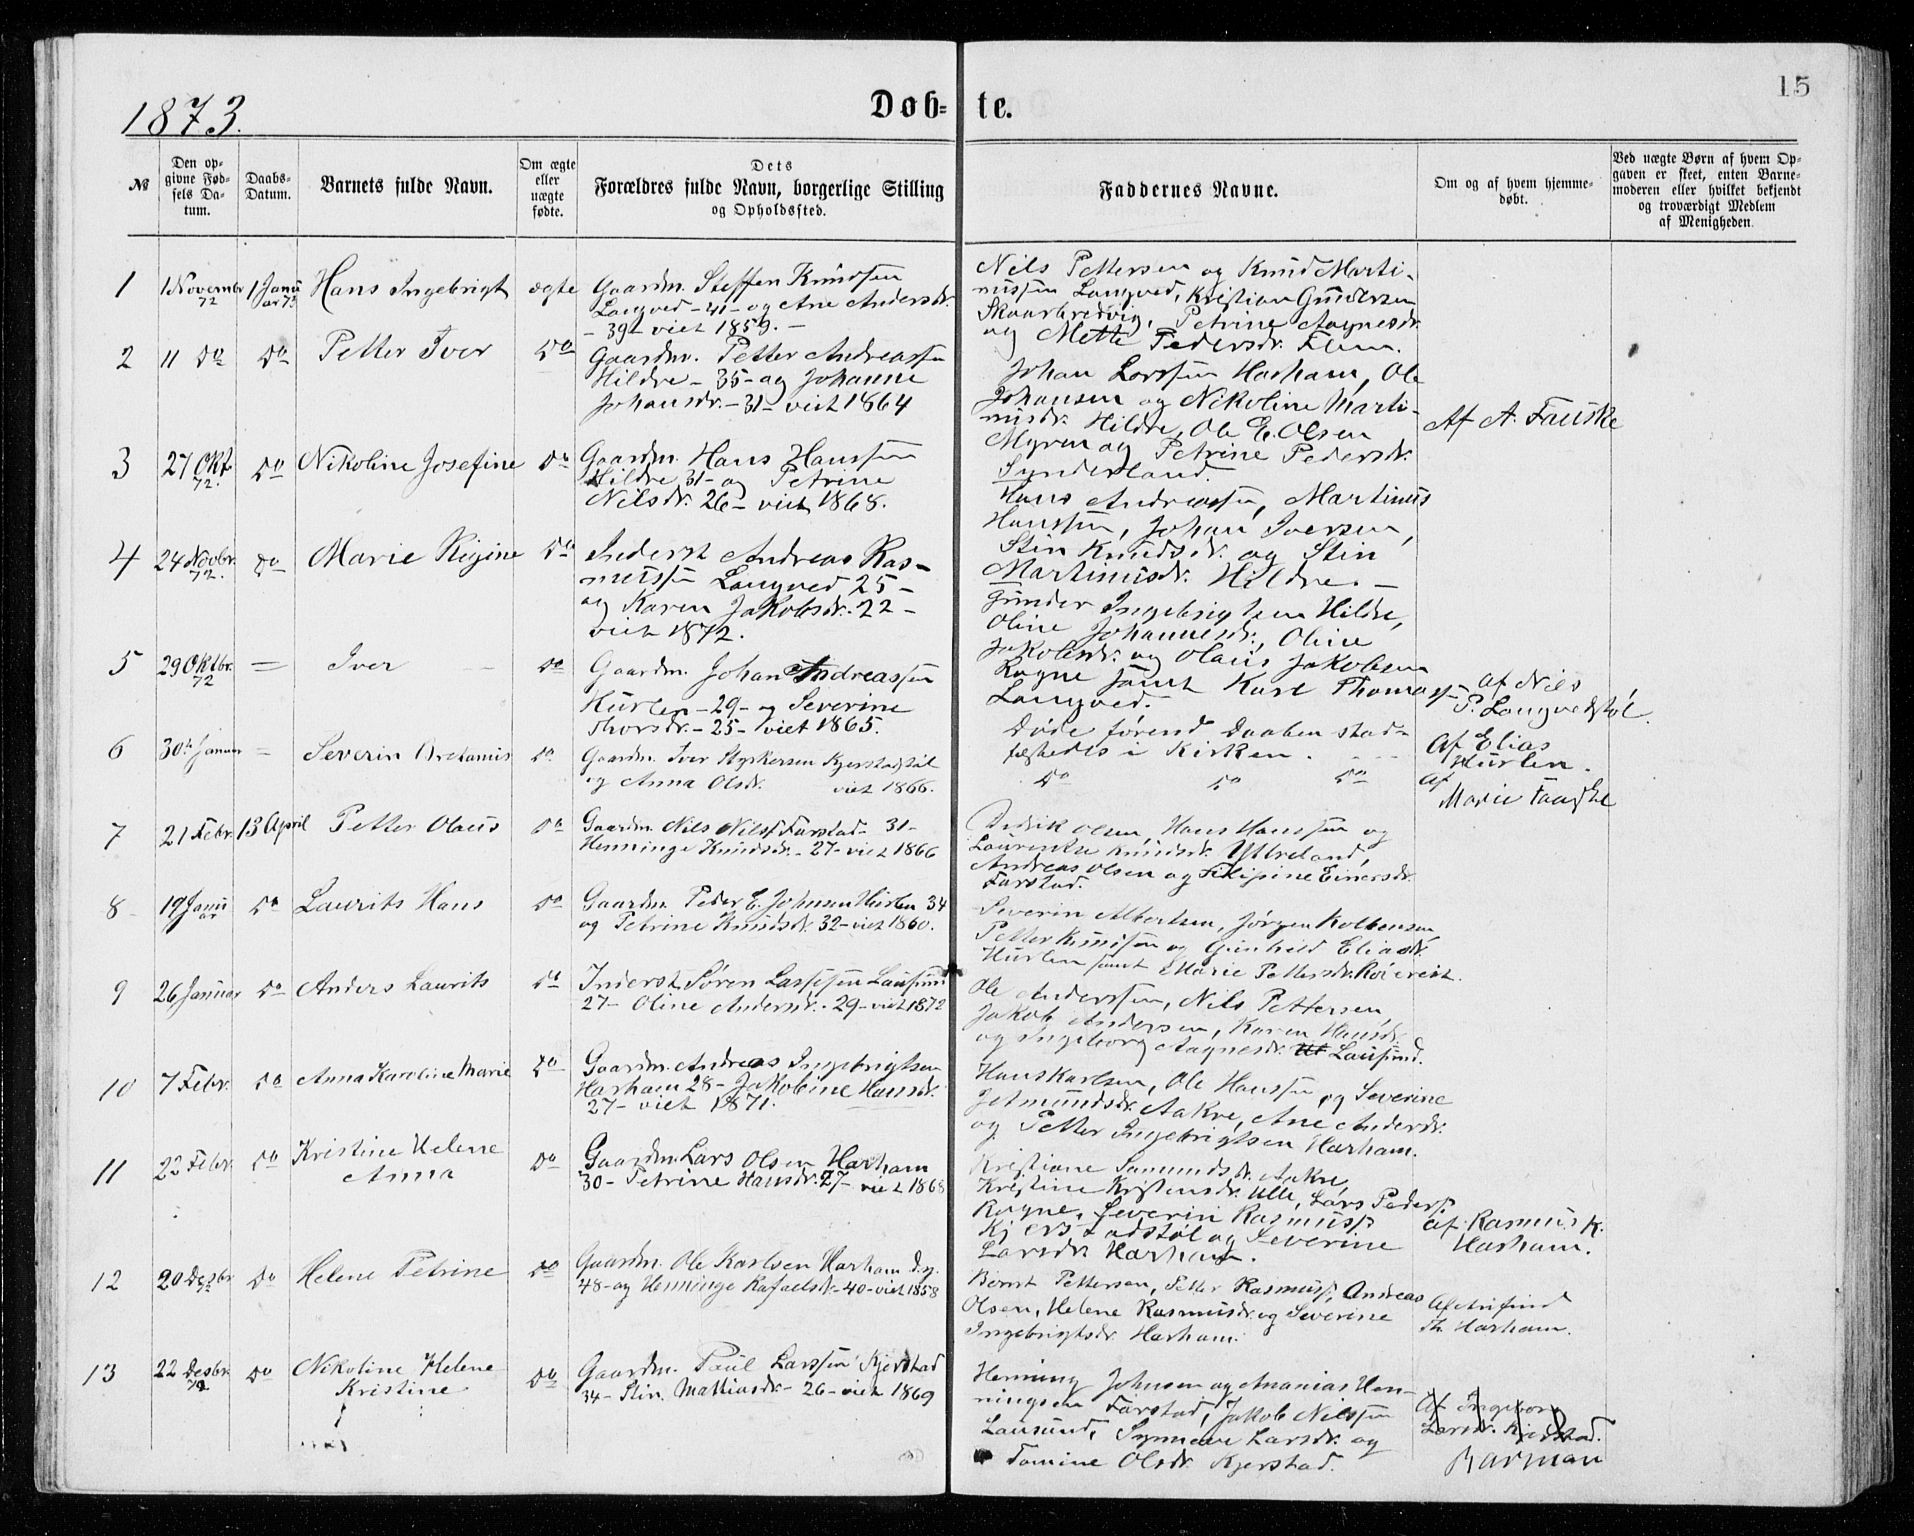 15
1873.
Døb- te.
№
Den op-
givne Fød-
sels Da-
tum.
Daabs-
Datum.
Barnets fulde Navn.
Om ægte
eller
uægte
fødte.
Dets
Forældres fulde Navn, borgerlige Stilling
og Opholdssted.
Faddernes Navne.
Om og af hvem hjemme-
døbt.
Ved uægte Børn af hvem Op-
gaven er skeet, enten Barne-
moderen eller hvilket bekjendt
og troværdigt Medlem
af Menigheden.
1
1 Novembr
72
1 Janu
ar 73
Hans Ingebrigt
ægte
Gaardm. Steffen Knudsen
Longved - 41 - og Ane Andersdr.
- 39 - viet 1859. -
Nils Pettersen og Knud Marti-
nussen Longved, Kristian Gundersen
Skaarbredvig, Petrine Aagnesdr.
og Mette Pedersdr. Flem.
2
11 Do
Do
Petter Iver
Do
Gaardm. Petter Andreassen
Hildre - 35 - og Johanne
Johansdr. - 31 - viet 1864
Johan Larssen Harham, Ole
Johansen og Nikoline Marti-
nusdr. Hildre, Ole E. Olsen
Myren og Petrine Pedersdr.
Synderland.
Af A. Fauske
3
27 Okt.
72.
Do
Nikoline Josefine
Do
Gaardm. Hans Hanssen
Hildre 31 - og Petrine
Nilsdr. 26 - viet 1868.
Hans Andreassen, Martinus
Hanssen, Johan Iversen,
Stin Knudsdr. og Stin
Martinusdr. Hildre. -
4
24 Novbr.
72.
Do
Marie Regine
Do
Inderst Andreas Ras-
mussen Longved 25 -
og Karen Jakobsdr. 22 -
viet 1872.
Gunder Ingebrigtsen Hildre,
Oline Johannesdr., Oline
Jakobsdr. og Olaus Jakobsen
Rogne samt Karl Thomassen
Longved.
5
29 Oktbr.
72
=
Iver
Do
Gaardm. Johan Andreassen
Hurlen - 29 - og Severine
Thorsdr. - 25 - viet 1865.
Døde førend Daaben stad-
fæstedes i Kirken.
Af Nils
P. Longvedstøl.
6
30te Januar
=
Severin
Do
Gaardm. Iver Styrkersen Kjerstadstøl
og Anna Olsdr. viet 1866.
Do Do Do
Af Elias
Hurlen.
af
Marie Fauske
7
21 Febr.
13 April
Petter Olaus
Do
Gaardm. Nils Nilsen Farstad - 31 -
Henninge Knudsdr. - 27 - viet 1866
Didrik Olsen, Hans Hanssen og
Laurentse Knudsdr. Ytreland,
Andreas Olsen og Filipine Einersdr.
Farstad.
8
19 Janu
ar
Do
Laurits Hans
Do
Gaardm. Peder E. Johnsen Hurlen 34
og Petrine Knudsdr. 32 - viet 1860.
Severin Albertsen, Jørgen Kolbensen,
Petter Knudsen og Gunhild Eliasdr.
Hurlen samt Marie Pettersdr. Røsvik.
9
26 Januar
Do
Anders Laurits
Do
Inderst Søren Lassesen Lausund
27 - Oline Andersdr. - 29 - viet 1872
Ole Anderssen, Nils Pettersen,
Jakob Andersen, Karen Hansdr.
og Ingeborg Aagnesdr. Lausund.
10
7 Febr.
Do
Anna Karoline Marie
Do
Gaardm. Andreas Ingebrigtsen
Harham 28 - Jakobine Hansdr.
27 - viet 1871.
Hans Karlsen, Ole Hanssen og Severine
Jetmundsdr. Aakre, Ane Andersdr.
og Petter Ingebrigtsen Harham.
11
22 Febr.
Do
Kristine Helene
Anna
Do
Gaardm. Lars Olsen Harham
30 - Petrine Hansdr. 27 - viet 1868
Kristiane Samundsdr. Aakre,
Kristine Kristensdr. Ulle, Lars Pedersen
Rogne, Severin Rasmussen
Kjerstadstøl og Severine
Larsdr. Harham.
Af Rasmus K.
Harham.
12
20 Desbr.
72
Do
Helene Petrine
Do
Gaardm. Ole Karlsen Harham
48 - og Henninge Rafaelsdr. - 40 - viet 1858
Bernt Pettersen, Petter Rasmussen, Andreas
Olsen, Helene Rasmusdr. og Severine
Ingebrigtsdr. Harham.
Th. Harham.
13
22 Desbr.
72
Do
Nikoline Helene
Kristine
Do
Gaardm. Paul Larssen Kjerstad
34 - Stin Mattiasdr. - 26 - viet 1869
Henning Johnsen og Ananias Hen-
ningsen Farstad, Jakob Nilssen
Lausund, Synneve Larsdr. og
Tomine Olsdr. Kjerstad.
Af Ingeborg
Larsdr. Kjerstad.
Barman